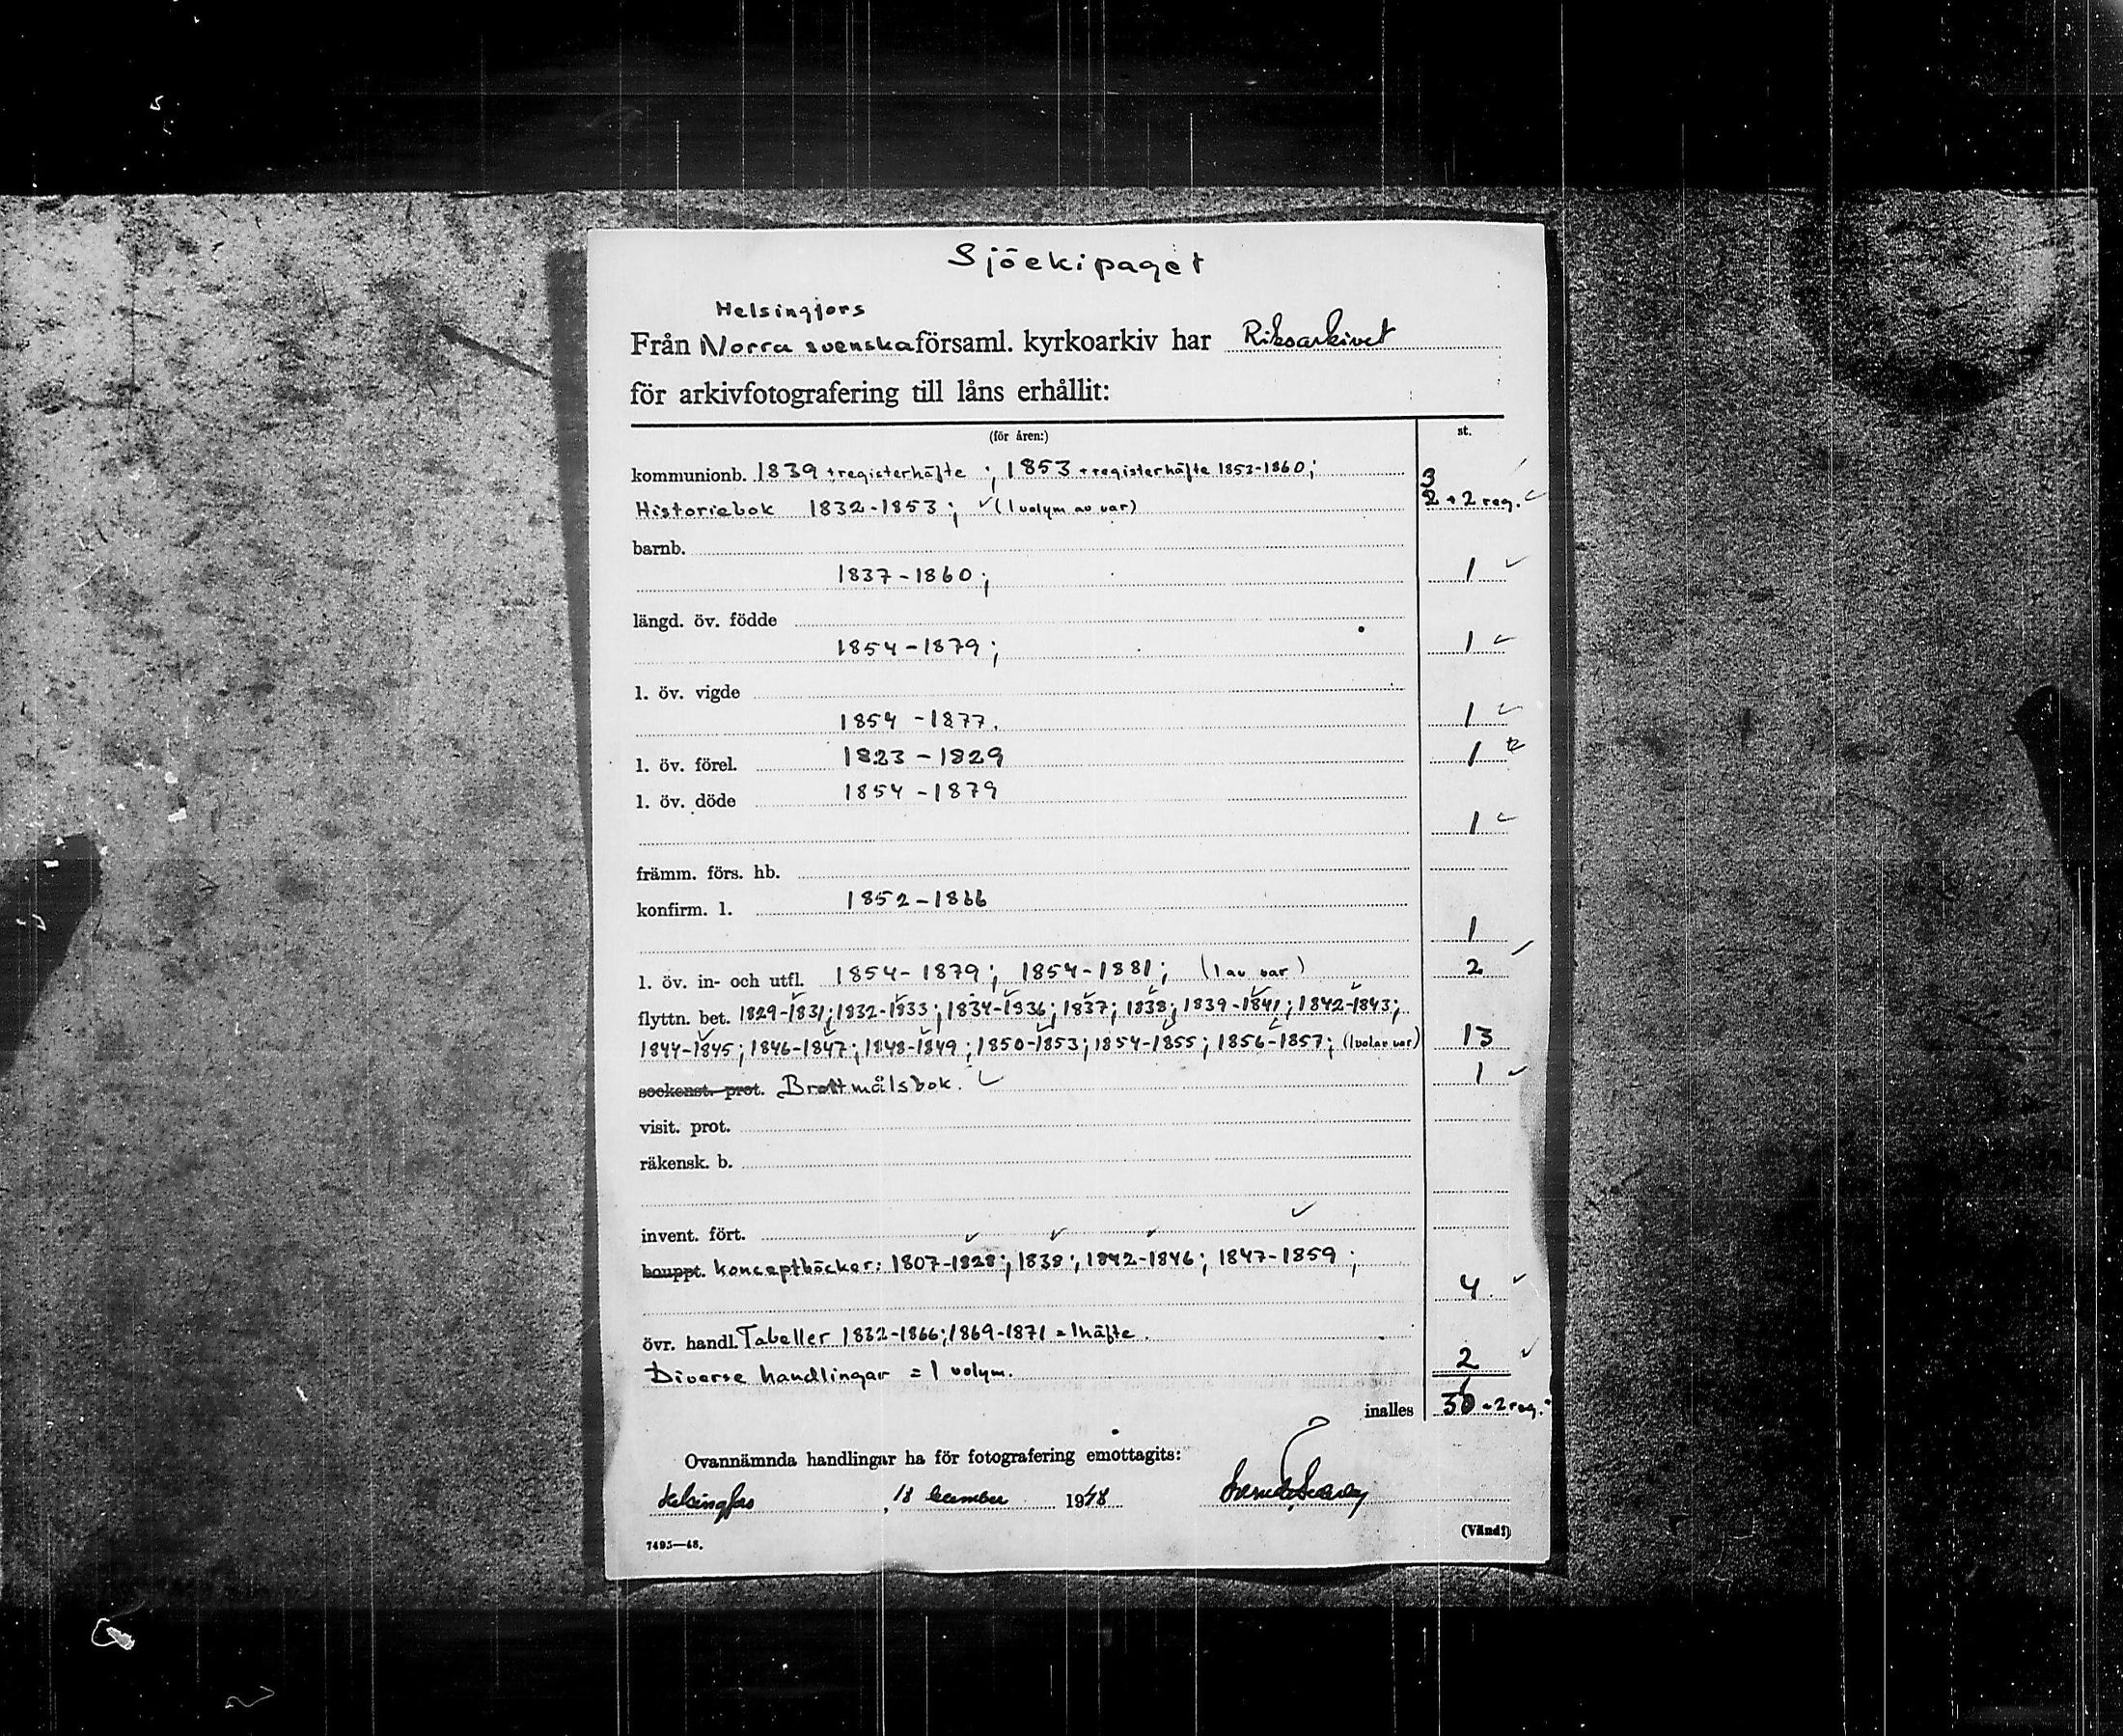 Sjöekipaget
Helsingfors
Från Norra svenska församl. kyrkoarkiv har Riksarkivet
för arkivfotografering till låns erhållit:
(för åren:) st.
kommunionb. 1839 + registerhäfte ; 1853 + registerhäfte 1853-1860; 3
Historiebok 1832-1853; (1 volym av var) 2 + 2 reg.
barnb.
1837-1860; 1
längd. öv. födde
1854-1879; 1
l. öv. vigde
1854-1877. 1
l. öv. förel. 1823-1829 1
l. öv. döde 1854-1879
1
främm. förs. hb.
konfirm. l. 1852-1866
1
l. öv. in- och utfl. 1854-1879; 1854-1881; (1 av var) 2
flyttn. bet. 1829-1831; 1832-1833; 1834-1936; 1837; 1838; 1839-1841; 1842-1843;
1844-1845; 1846-1847; 1848-1849; 1850-1853; 1854-1855; 1856-1857; (1 vol av var) 13
sockenst. prot. Brottmålsbok. 1
visit. prot.
räkensk. b.
invent. fört.
bouppt. konceptböcker: 1807-1828; 1838; 1842-1846; 1847-1859;
4
övr. handl. Tabeller 1832-1866; 1869-1871 = 1 häfte.
Diverse handlingar = 1 volym. 2
inalles + 2 reg.
Ovannämnda handlingar ha för fotografering emottagits:
Helsingfors, 18 december 1948
7495—48. (Vänd!)